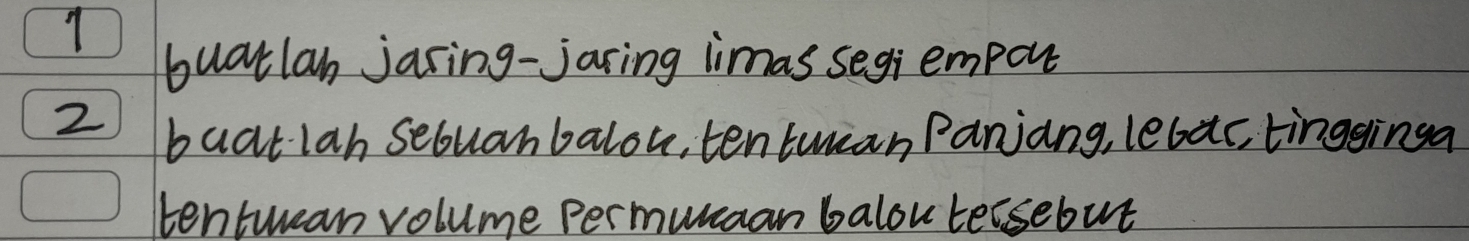 1 buatlah jaring-jaring limas segi empat
2 buatlah sebuah balok, tentukan Panjang, lebar, tingginya
tentukan volume Permukaan balok tersebut